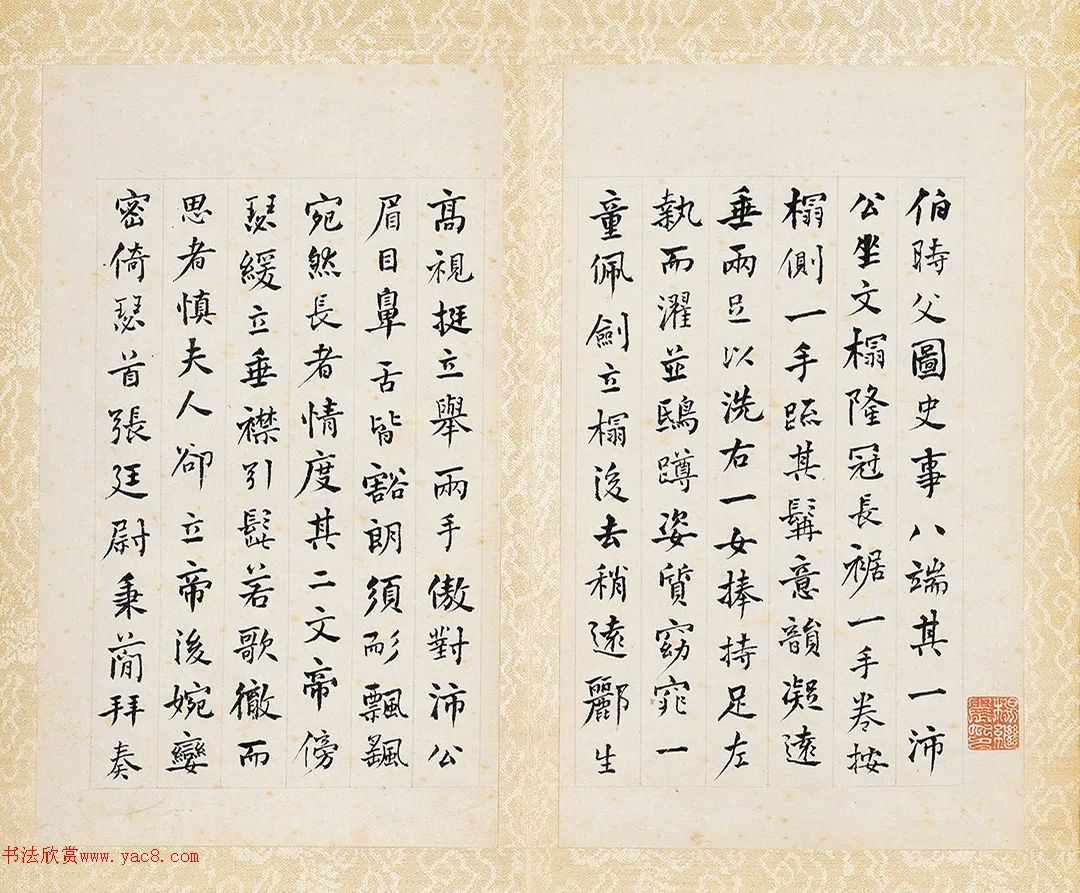 伯時父圖史事八端其一沛
公坐文榻隆冠長裾一手卷按
榻側一手䟽其髯意韻凝遠
垂兩足以洗右一女捧持足左
執而濯並鴟蹲姿質窈窕一
童佩劍立榻後去稍遠酈生
高視挺立舉兩手傲對沛公
眉目鼻舌皆豁朗須耏飄颻
宛然長者情度其二文帝傍
瑟緩立垂襟引髭若歌徹而
思者慎夫人卻立帝後婉孌
密倚瑟首張廷尉秉蕳拜奏
书法欣赏www.yac8.com